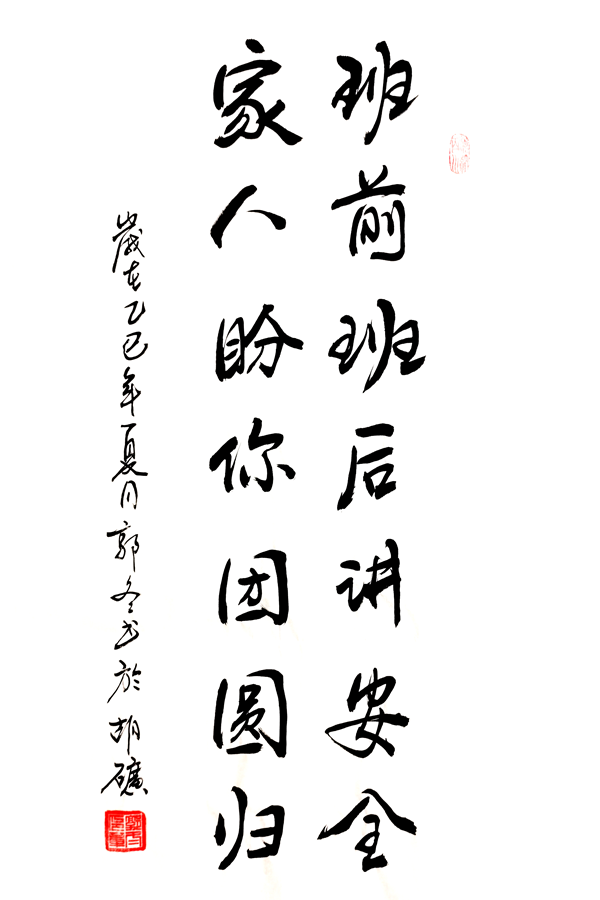 班前班后讲安全
家人盼你团圆归
歲在乙巳年夏月郭冬书於胡礦